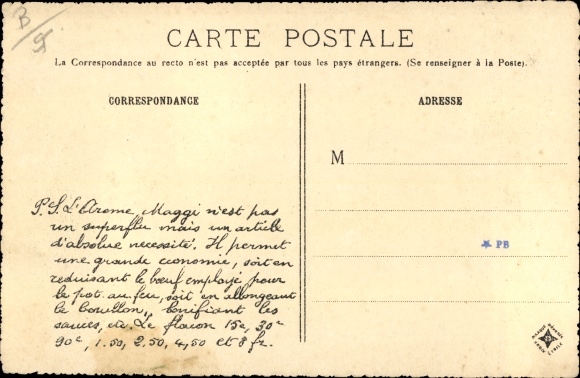 B
CARTE POSTALE
La Correspondance au recto n'est pas acceptée par tous les pays étrangers. (Se renseigner à la Poste).
CORRESPONDANCE
ADRESSE
M
P.S. L'Arome Maggi n'est pas
un superflu mais un article
d'absolue necessité. Il permet
une grande economie, soit en
reduisant le bœuf employé pour
le pot au feu, soit en allongeant
le bouillon, bonifiant les
sauces, etc. Le flacon 15c, 30c
90c, 1.50, 2.50, 4,50 et 8 fr.
PB